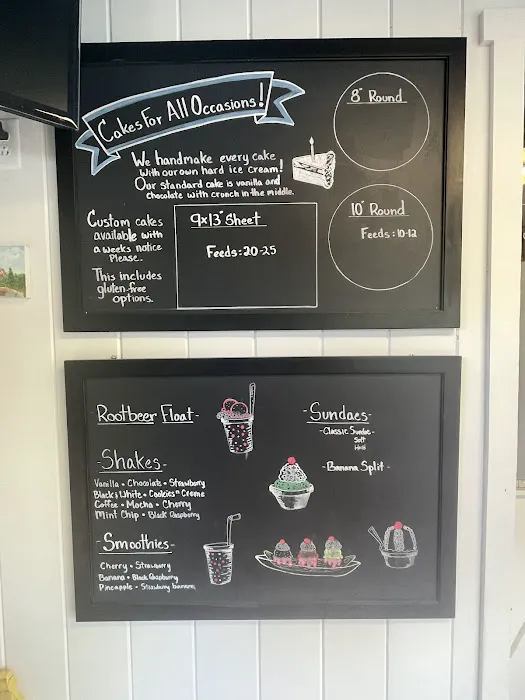 Cakes For All Occasions!
We handmake every cake
with our own hard ice cream!
Our standard cake is vanilla and
chocolate with crunch in the middle.
Custom cakes
available with
a weeks notice
Please.
This includes
gluten-free
options.
9x13" Sheet
Feeds: 20-25
8" Round
10" Round
Feeds: 10-12
Rootbeer Float-
-Shakes-
Vanilla • Chocolate • Strawberry
Black & White • Cookies n Creme
Coffee • Mocha • Cherry
Mint Chip • Black Raspberry
-Smoothies-
Cherry • Strawberry
Banana • Black Raspberry
Pineapple • Strawberry banana
-Sundaes-
-Classic Sundae-
Soft
Hard
-Banana Split-